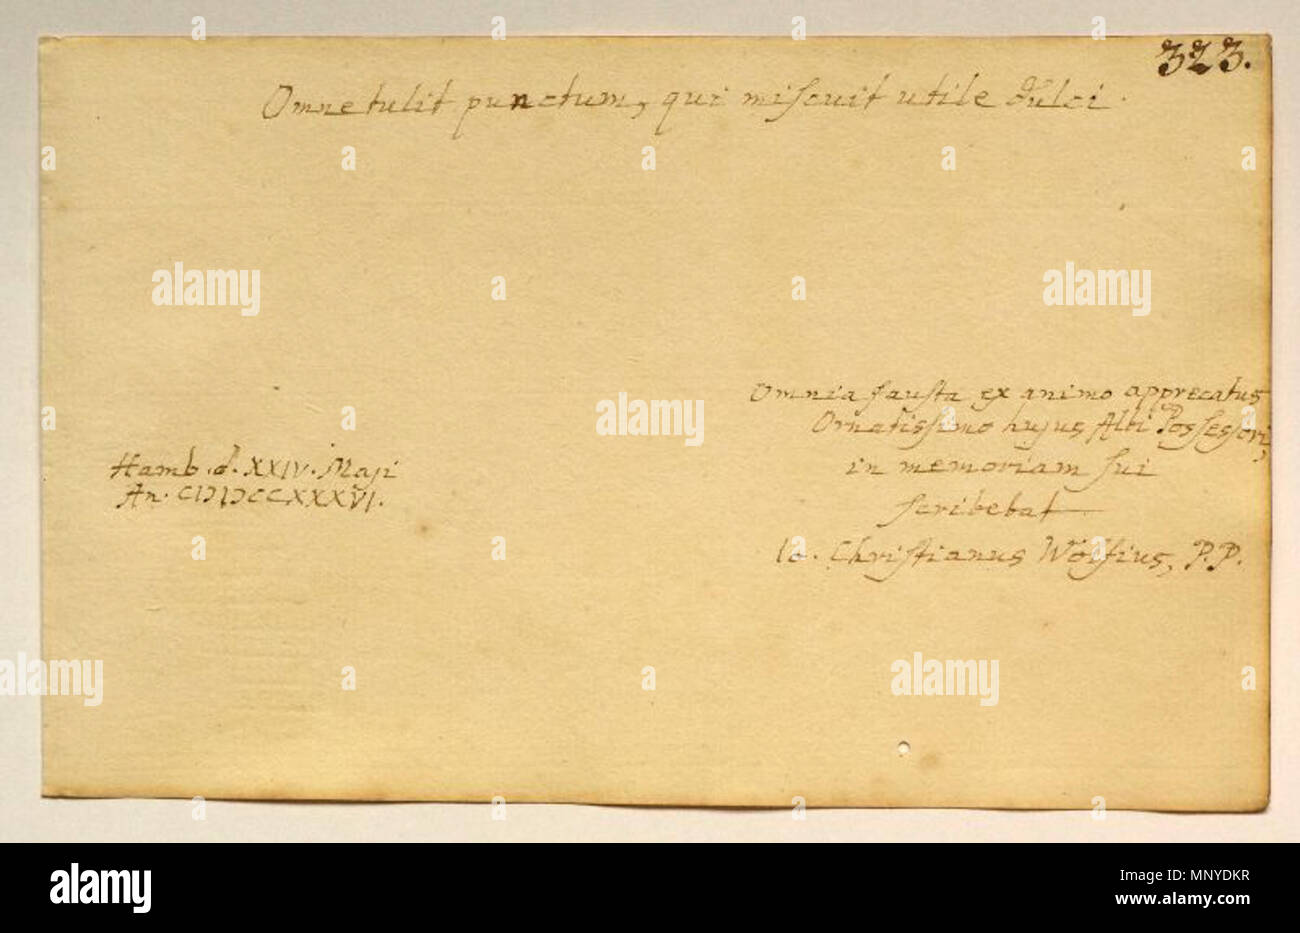 323.
Omne tulit punctum, qui miscuit utile dulci.
Omnia fausta ex animo apprecatus
Ornatissimo hujus Albi Possessori,
in memoriam sui
scribebat
Io. Christianus Wolfius, P.P.
Hamb. d. XXIV. Maji
An. CIↃIↃCCXXXVI.
alamy
Image ID: MNYDKR
www.alamy.com